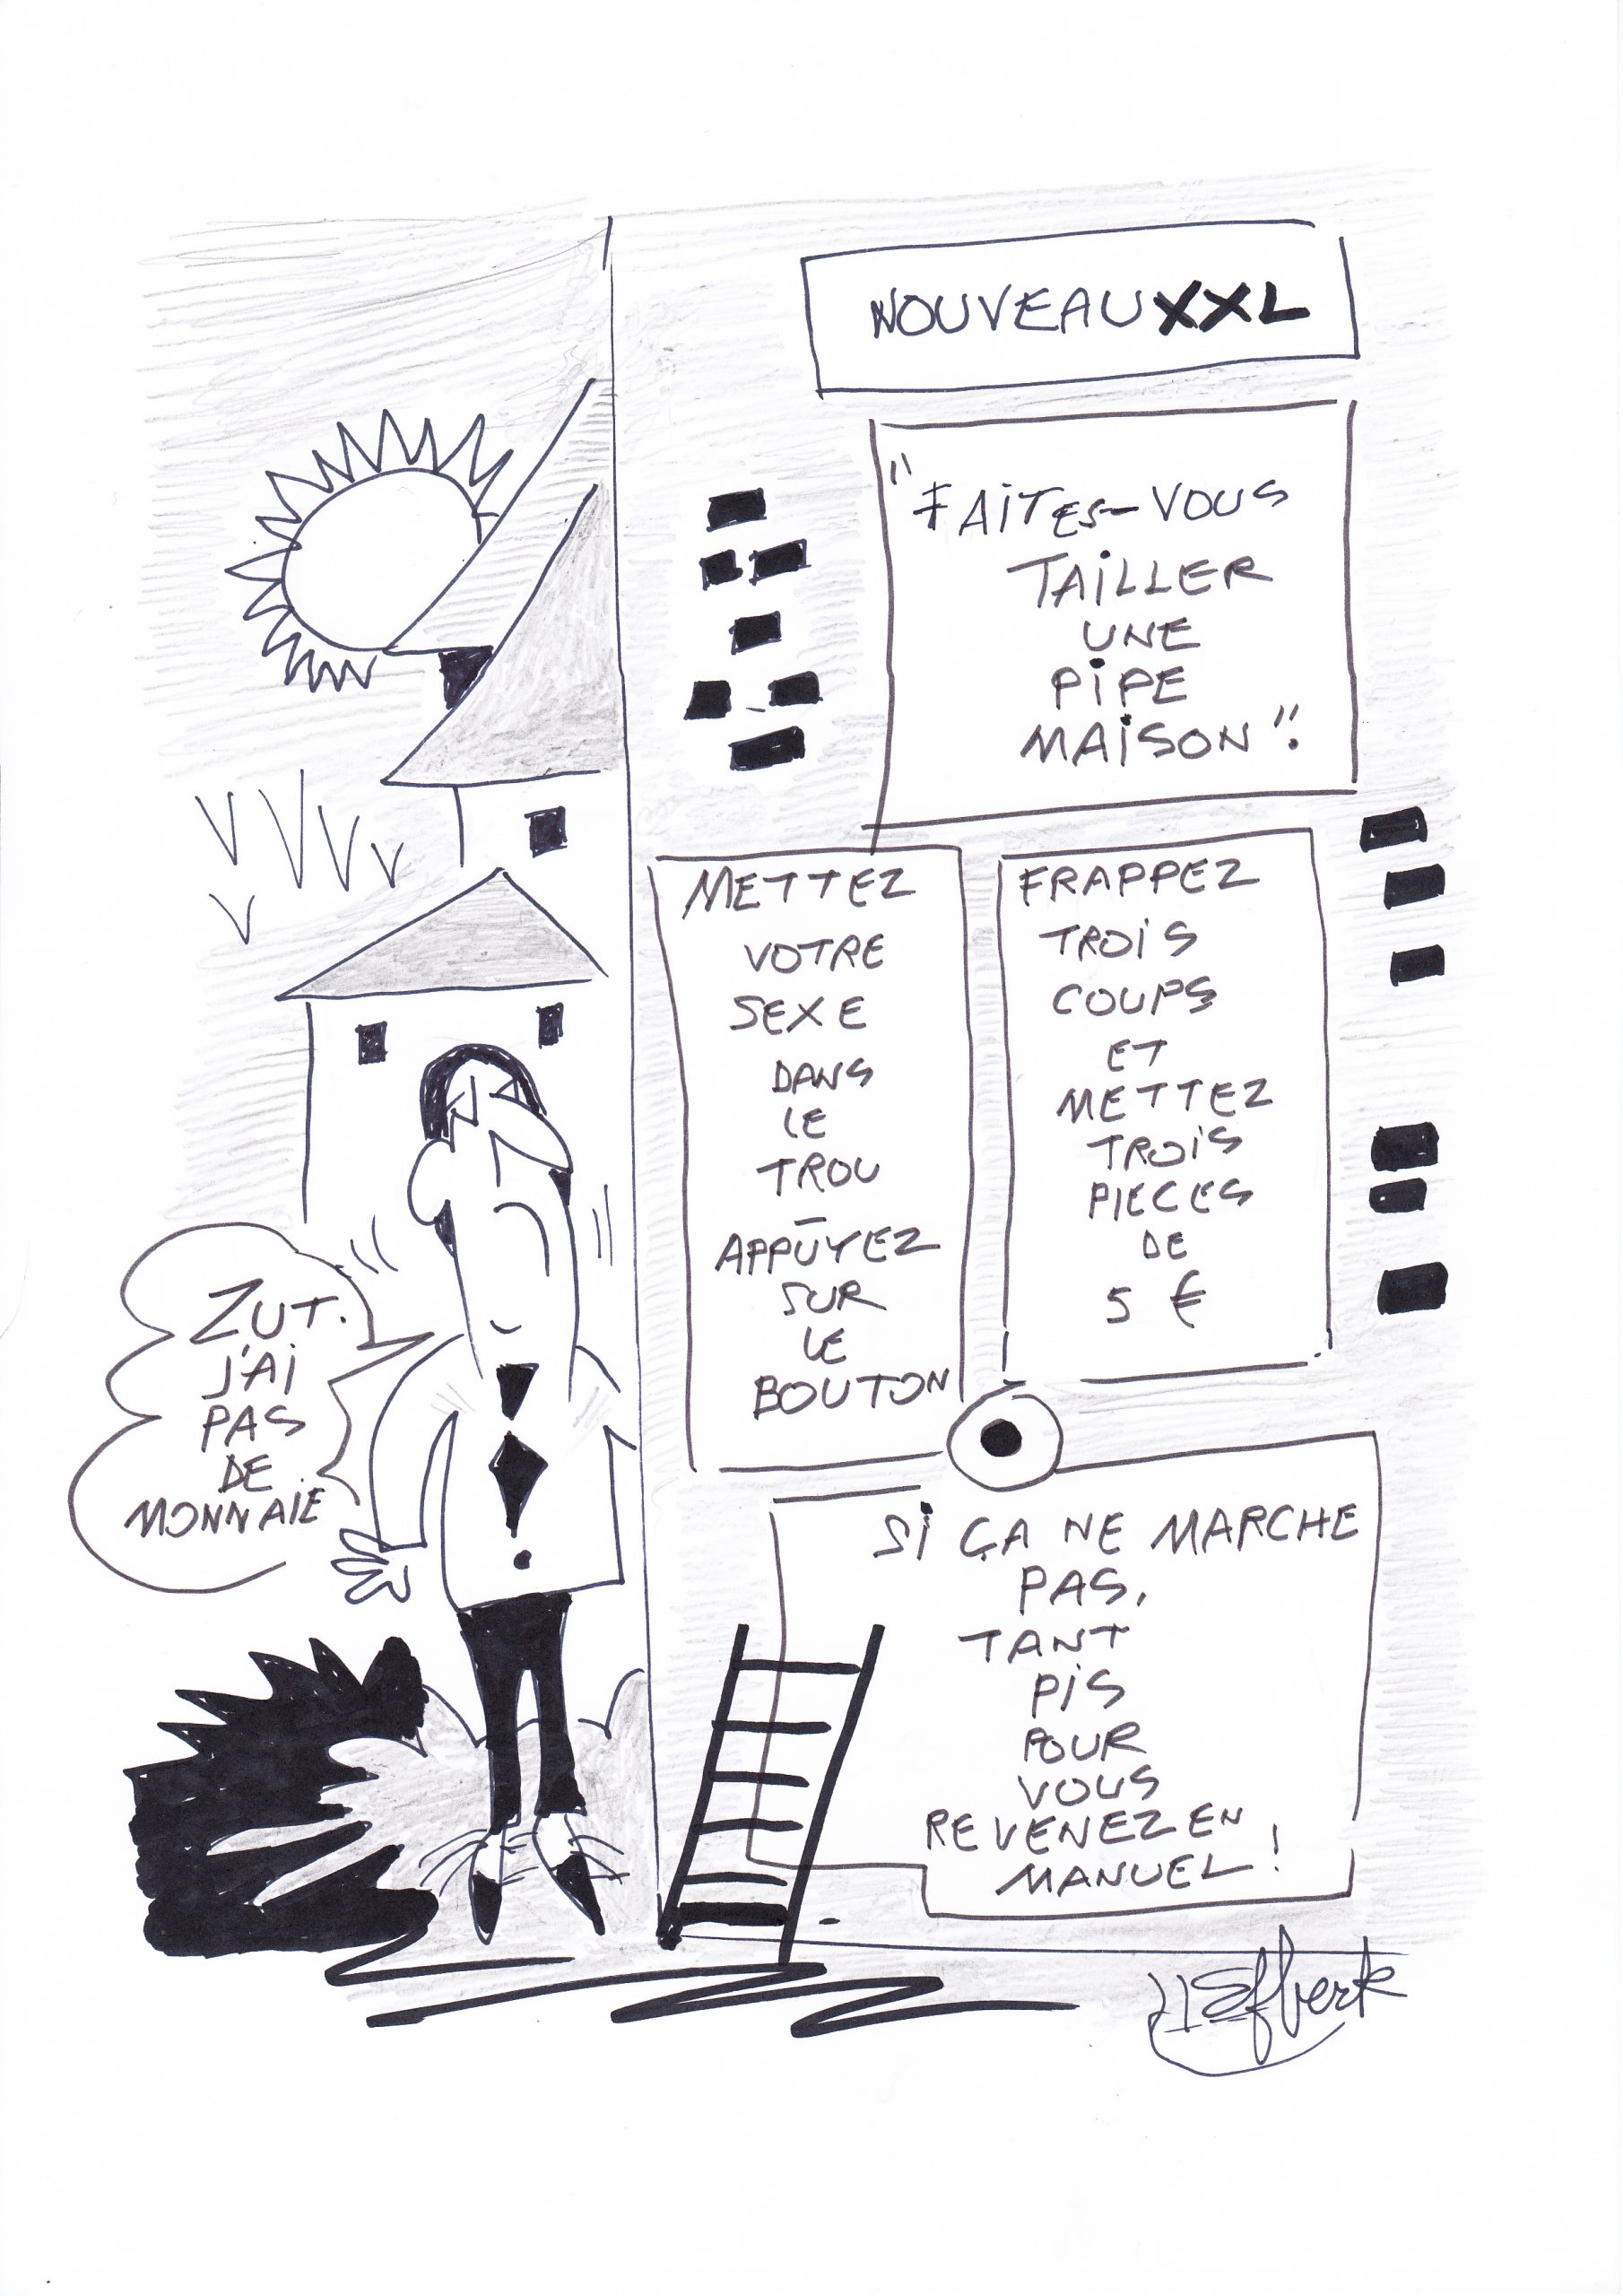 NOUVEAU XXL
"FAITES-VOUS
TAILLER
UNE
PIPE
MAISON".
METTEZ
VOTRE
SEXE
DANS
LE
TROU
–
APPUYEZ
SUR
LE
BOUTON
FRAPPEZ
TROIS
COUPS
ET
METTEZ
TROIS
PIECES
DE
5 €
ZUT.
J'AI
PAS
DE
MONNAIE
SI ÇA NE MARCHE
PAS,
TANT
PIS
POUR
VOUS
REVENEZ EN
MANUEL !